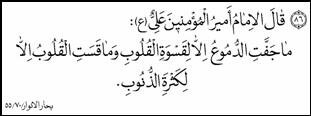 ﴿٨٦﴾ قَالَ الْاِمَامُ أَمِيرُ الْمُؤْمِنِينَ عَلِيٌّ (ع):
مَا جَفَّتِ الدُّمُوعُ اِلاّٰ لِقَسْوَةِ الْقُلُوبِ وَمَا قَسَتِ الْقُلُوبُ اِلاّٰ
لِكَثْرَةِ الذُّنُوبِ.
بحار الانوار ٥٥/٧٠